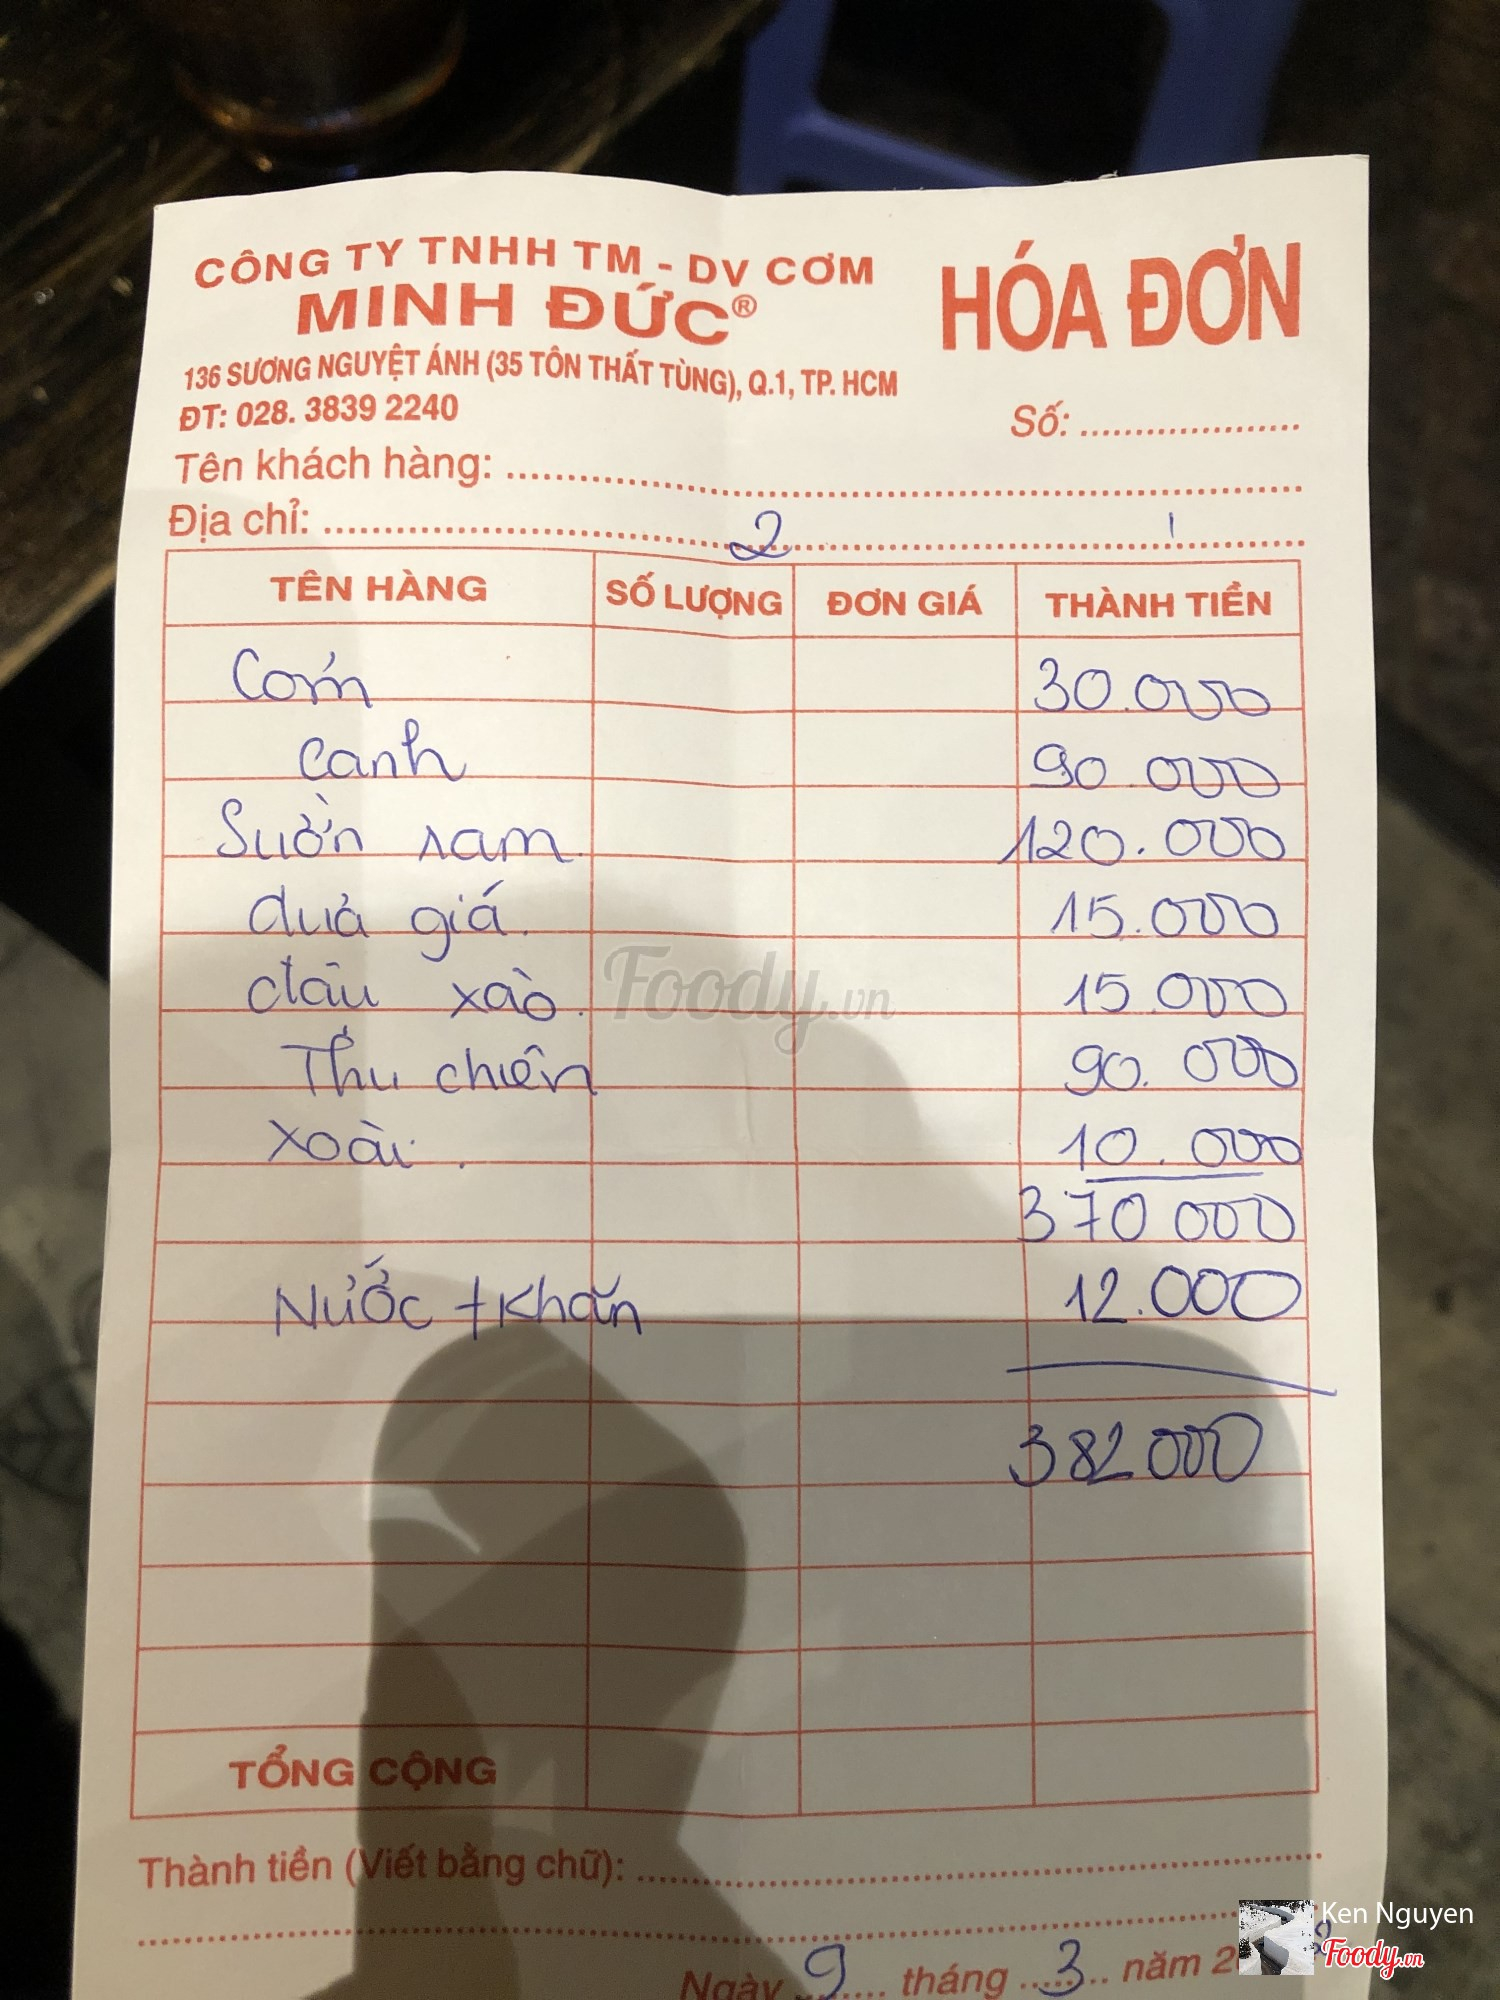 CÔNG TY TNHH TM - DV CƠM
MINH ĐỨC®
HÓA ĐƠN
136 SƯƠNG NGUYỆT ÁNH (35 TÔN THẤT TÙNG), Q.1, TP. HCM
ĐT: 028. 3839 2240
Số: ....................
Tên khách hàng: ....................
Địa chỉ: ....................
2
TÊN HÀNG SỐ LƯỢNG ĐƠN GIÁ THÀNH TIỀN
Cơm 30.000
Canh 90.000
Sườn ram 120.000
dưa giá 15.000
đậu xào 15.000
Thu chiên 90.000
Xoài 10.000
370 000
Nước + Khăn 12.000
382 000
Foody.vn
TỔNG CỘNG
Thành tiền (Viết bằng chữ): ....................
Ngày 9 tháng 3 năm 2
Ken Nguyen
Foody.vn